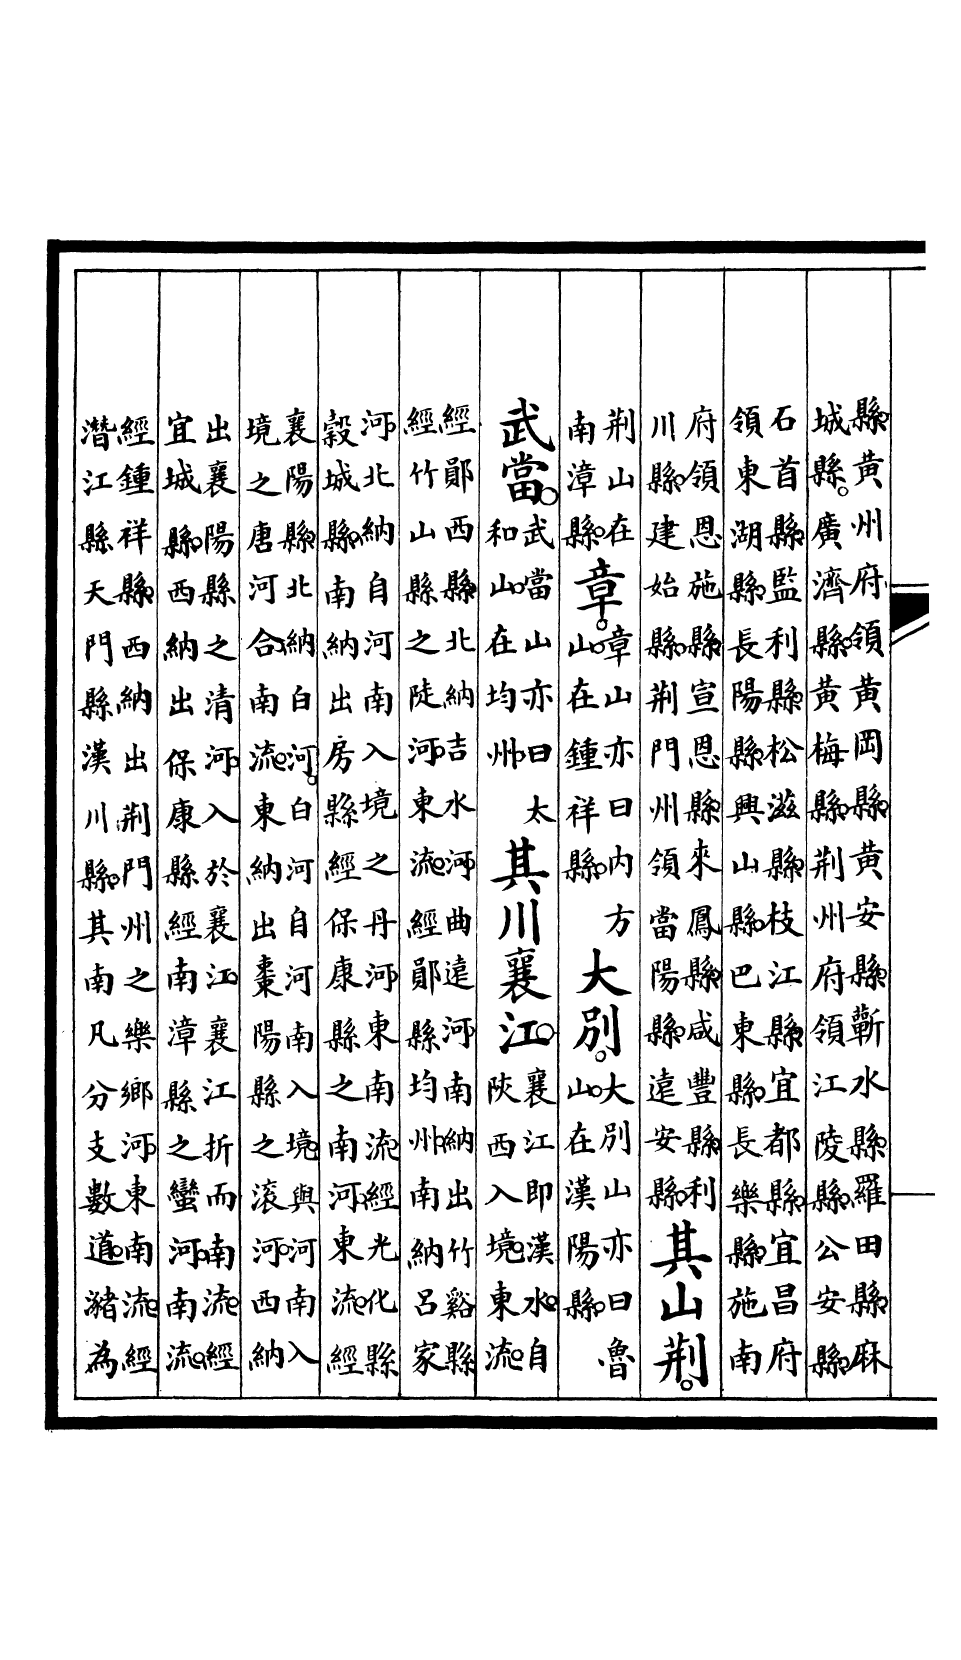 縣○黃州府領黃岡縣○黃安縣○蘄水縣○羅田縣○麻
城縣○廣濟縣○黃梅縣○荆州府領江陵縣○公安縣○
石首縣○監利縣○松滋縣○枝江縣○宜都縣○宜昌府
領東湖縣○長陽縣○興山縣○巴東縣○長樂縣○施南
府領恩施縣○宣恩縣○來鳳縣○咸豐縣○利
川縣○建始縣○荆門州領當陽縣○遠安縣○
其山荆○
荆山在
南漳縣○
章○
章山亦曰內方
山○在鍾祥縣○
大別○
大別山亦曰魯
山○在漢陽縣○
武當○
武當山亦曰太
和山○在均州○
其川襄江○
襄江即漢水○自
陝西入境○東流○
經鄖西縣○北納吉水河○曲遠河○南納出竹谿縣
經竹山縣之陡河○東流○經鄖縣均州○南納呂家
河○北納自河南入境之丹河○東南流○經光化縣
穀城縣○南納出房縣經保康縣之南河○東流○經
襄陽縣○北納白河○白河自河南入境○與河南入
境之唐河合○南流○東納出棗陽縣之滚河○西納
出襄陽縣之清河○入於襄江○襄江折而南流○經
宜城縣○西納出保康縣經南漳縣之蠻河○南流○
經鍾祥縣○西納出荆門州之樂鄉河○東南流○經
潛江縣天門縣漢川縣○其南凡分支數道○瀦為